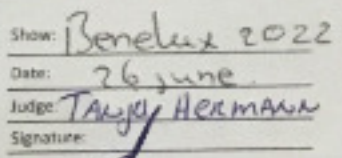 Show: Benelux 2022
Date: 26 june.
Judge: TANJA HERMANN
Signature: